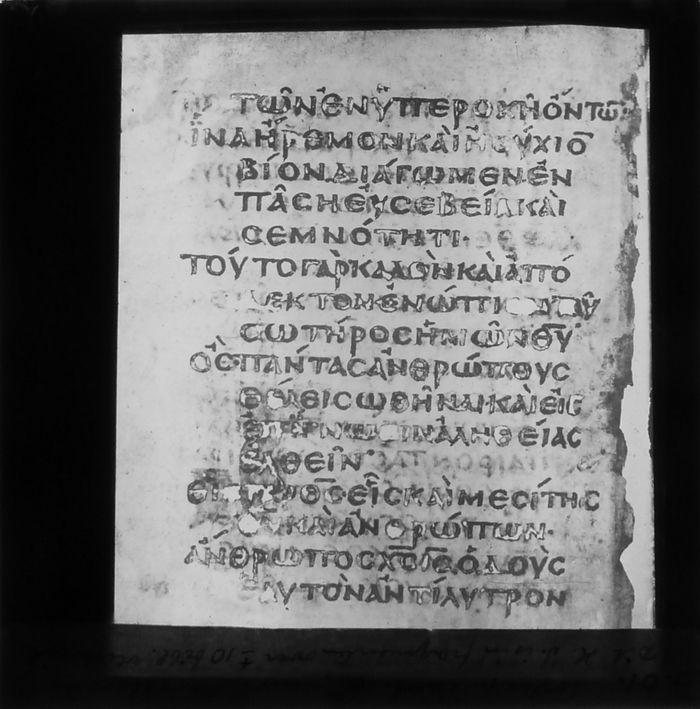 ΤΩ͂ΝἘΝΫΠΕΡΟΧΗ͂ὌΝΤΩ̅·
ΪΝΑἬΡΕΜΟΝΚΑΙΗΣΎΧΙΟ̅
ΒΊΟΝΔΙΆΓΩΜΕΝἘΝ
ΠΑ͂ϹΗΕΥ̓ϹΕΒΕΊΑΚΑΙ
ϹΕΜΝΌΤΗΤΙ·
ΤΟΥ͂ΤΟΓᾺΡΚΑΛῸΝΚΑῚἈΠΌ
ΔΕΚΤΟΝἘΝΏΠΙΟΝΤΟΥ͂
ϹΩΤΗ͂ΡΟϹἩΜΩ͂ΝΘ̅Υ̅
Ὃ̀ϹΠΆΝΤΑϹἈΝΘΡΏΠΟΥϹ
ΘΈΛΕΙϹΩΘΗ͂ΝΑΙΚΑῚΕἸϹ
ἘΠΊΓΝΩϹΙΝἈΛΗΘΕΊΑϹ
ἘΛΘΕΙ͂Ν·
ΕΙ͂ϹΓΑΡΘ̅Ϲ̅ΕΙ͂ϹΚΑῚΜΕϹΊΤΗϹ
Θ̅Υ̅ΚΑῚἈΝΘΡΏΠΩΝ·
ἌΝΘΡΩΠΟϹΧ̅Ϲ̅Ι̅Ϲ̅ὉΔΟῪϹ
ΕΑΥΤῸΝἈΝΤΊΛΥΤΡΟΝ